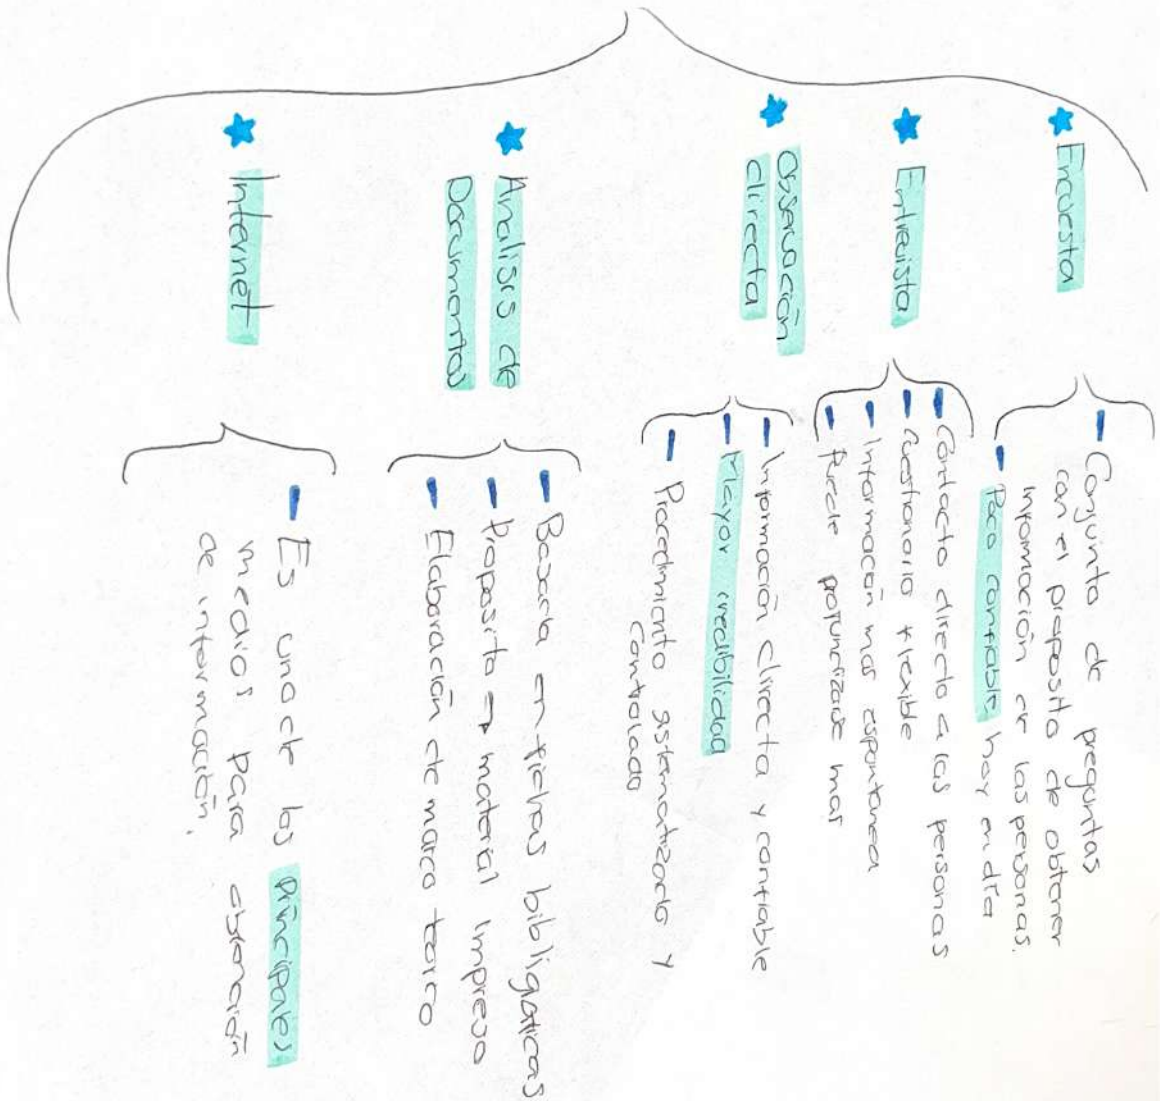 Encuesta
Conjunto de preguntas
con el proposito de obtener
información de las personas.
Poco confiable, hoy en día
Entrevista
Contacto directo a las personas
Cuestionario flexible
Información mas espontanea
Puede profundizarse mas
Observación
directa
Información directa y confiable
Mayor credibilidad
Procedimiento sistematizado y
controlado
Analisis de
Documentos
Basada en fichas bibligaficas
Proposito → material impreso
Elaboración de marco torico
Internet
Es uno de los principales
medios para obtención
de información.